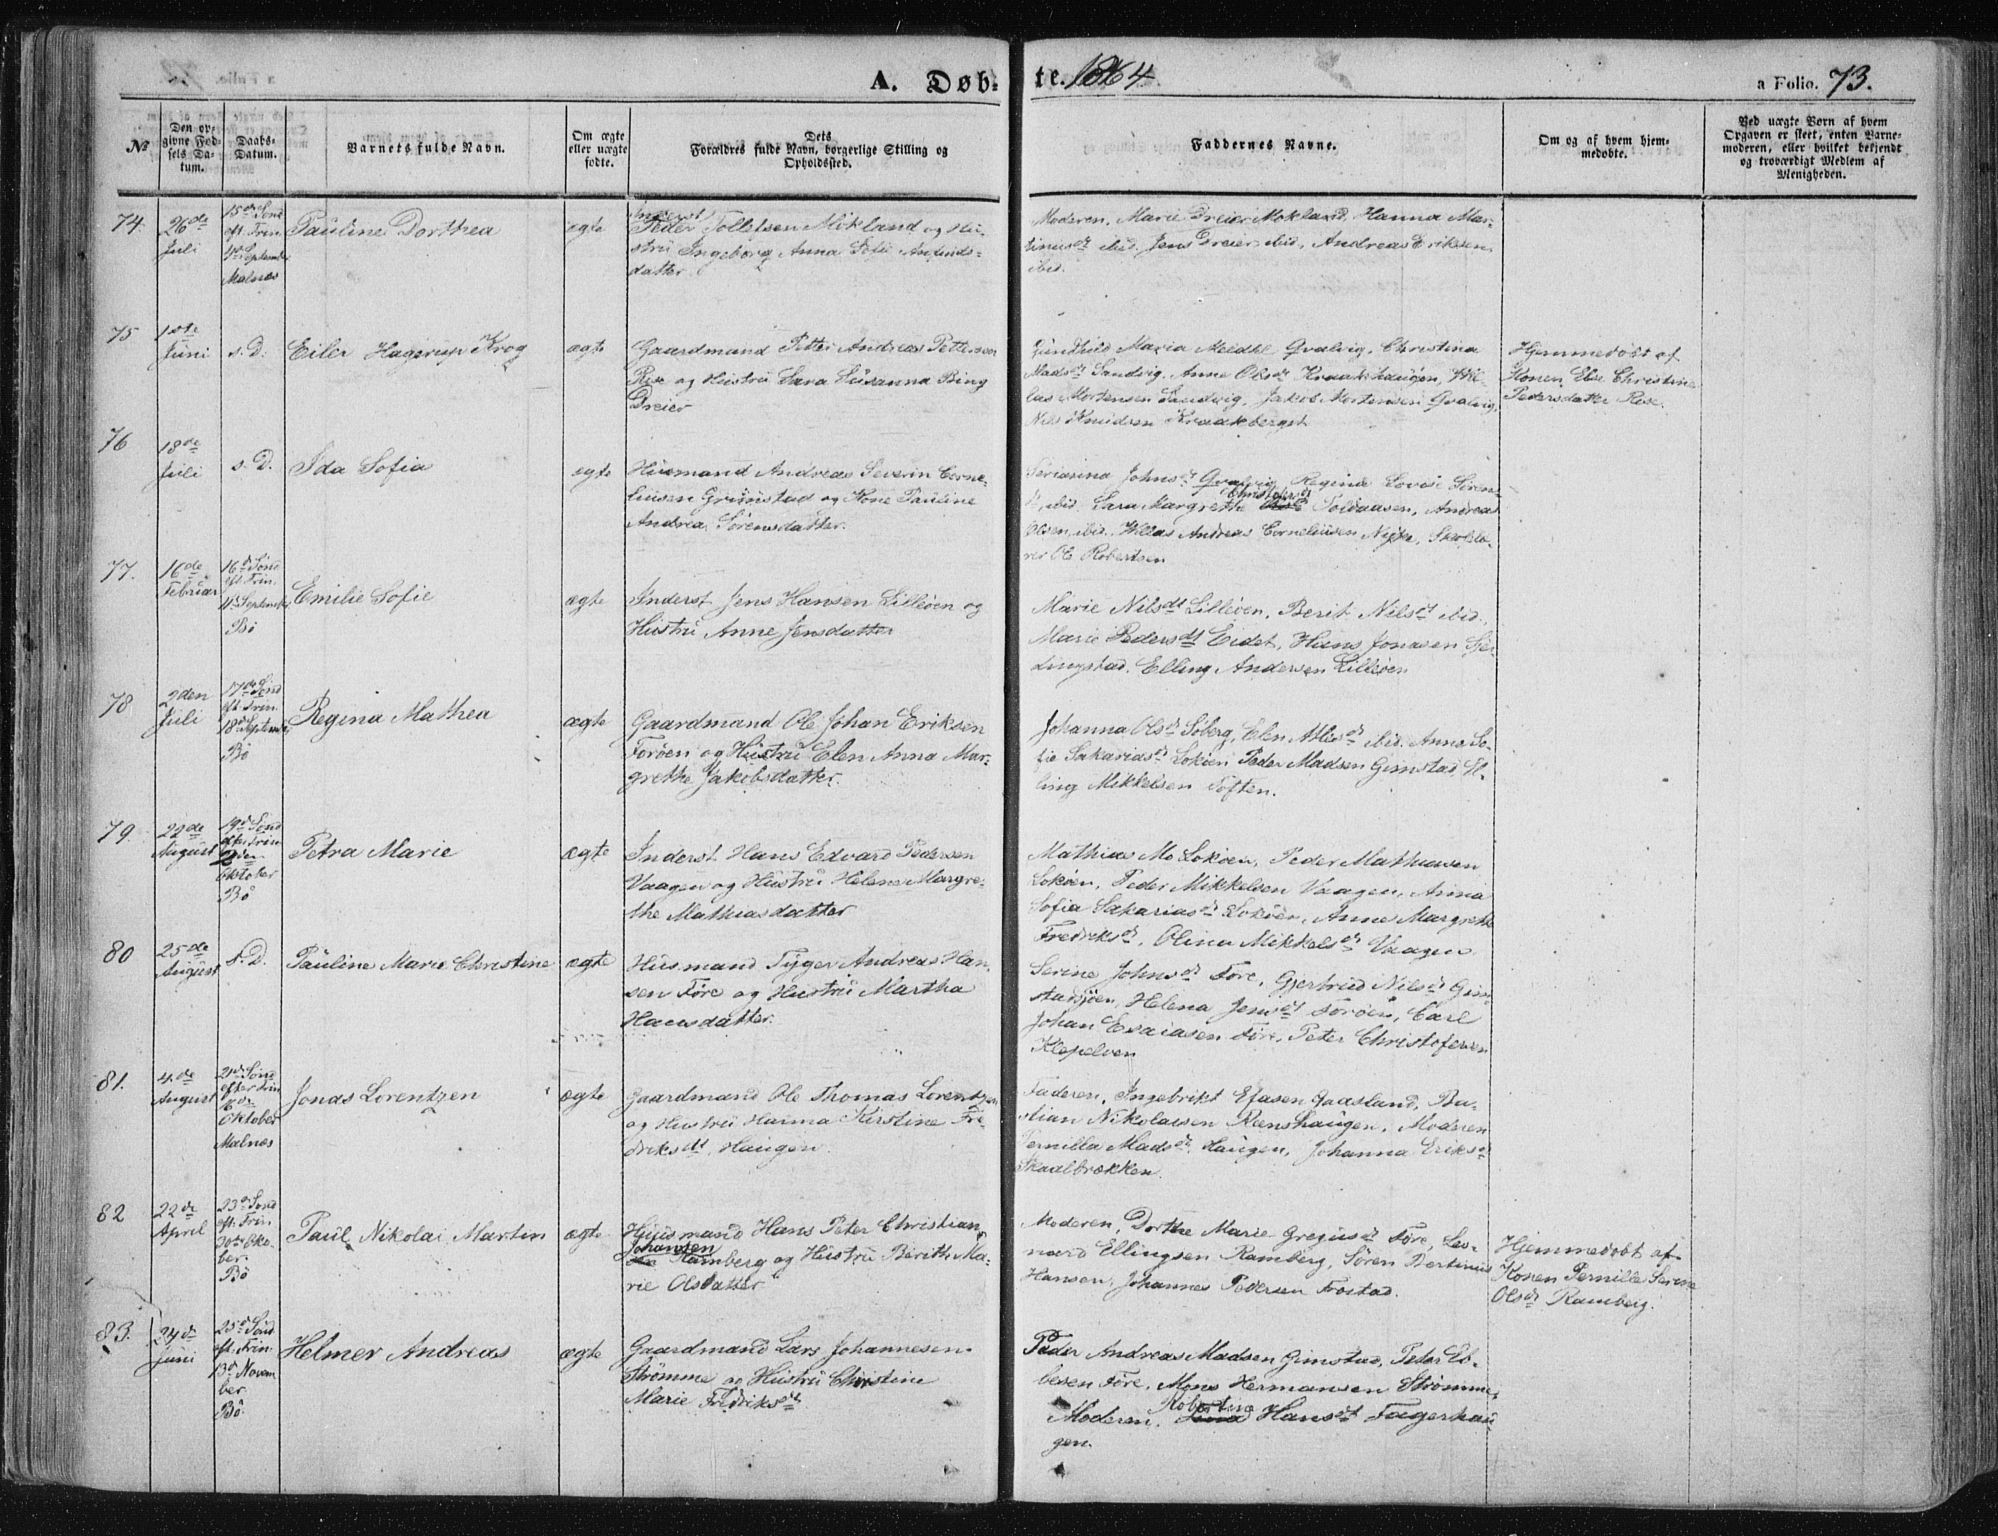 A. Døb-
te. 1864.
a Folio. 73.
№
Den op-
givne Fød-
sels Da-
tum.
Daabs-
Datum.
Barnets fulde Navn.
Om ægte
eller uægte
fødte.
Dets
Forældres fulde Navn, borgerlige Stilling og
Opholdssted.
Faddernes Navne.
Om og af hvem hjem-
medøbte.
Ved uægte Børn af hvem
Opgaven er skeet, enten Barne-
moderen, eller hvilket bekjendt
og troværdigt Medlem af
Menigheden.
74.
26de
Juli
15de Sönd
eft. Trin.
4de Septembr
Malnæs
Pauline Dorthea
ægte
Inderst
Peder Tollefsen Mökland og Hu-
stru Ingeborg Anna Sofie Anfinds-
datter
Moderen, Marie Dreier Mökland, Hanna Mar-
tinusdt ibid, Jens Dreier ibid, Andreas Eriksen
ibid.
75
1ste
Juni
s. D.
Eiler Hagerup Krog
ægte
Gaardmand Petter Andreas Pettersen
Rise og Hustru Sara Susanna Bing
Dreier
Gundhild Maria Meldal Qvalvig, Christina
Madsdt Sandvig, Anne Olsdt Kraakhaugen, Wil-
las Mortensen Sandvig, Jakob Mortensen Qvalvig,
Nils Knudsen Kraakberget
Hjemmedöbt af
Konen Else Christine
Pedersdatter Rise.
76
18de
Juli
s. D.
Ida Sofia
ægte
Husmand Andreas Severin Corne-
liusen Grimstad og Kone Pauline
Andrea Sörensdatter
Serianna Johnsdt Qvalvig, Regine Lovise Sören-
dt ibid. Sara Margrethe Christofersdt Toldaasen, Andreas
Olsen ibid. Willas Andreas Corneliusen Nyke, Skolelæ-
rer Ole Robertsen
77.
16de
Februar
16d Sönd
eft. Trin.
11d September
Bö
Emilie Sofie
ægte
Inderst Jens Hansen Lilleöen og
Hustru Anne Jensdatter
Marie Nilsdt Lilleöen, Berit Nilsdt ibid.
Marie Pedersdt Eidet, Hans Jonasen Sje-
lingstad, Elling Andersen Lilleöen
78
2den
Juli
17de Sönd
eft. Trin.
18d September
Bö
Regina Mathea
ægte
Gaardmand Ole Johan Eriksen
Foröen og Hustru Elen Anna Mar-
grethe Jakobsdatter.
Johanna Olsdt Söberg, Elen Atlisdt ibid. Anna So-
fie Sakariasdt Loköen Peder Madsen Gimstad, El-
ling Mikkelsen Toften.
79.
22de
August
19d Sönd
eft. Trin
2den
Oktober
Bö
Petra Marie
ægte
Inderst Hans Edvard Pedersen
Vaagen og Hustru Helene Margre-
the Mathiasdatter
Mathias Mo Loköen, Peder Mathiasen
Loköen, Peder Mikkelsen Vaagen, Anna
Sofia Sakariasdt Loköen, Anne Margrethe
Fredriksdt, Olina Mikkelsdt Vaagen
80
25de
August
s. D.
Pauline Marie Christine
ægte
Husmand Tyger Andreas Han-
sen Före og Hustru Martha
Hansdatter.
Serine Johnsdt Före, Gjertrud Nilsdt Gim-
stadsjöen, Helena Jensdt Foröen, Carl
Johan Esaiasen Före, Peter Christofersen
Klepelven
81.
4de
August
21d Sönd
efter Trin
16de
Oktober
Malnæs
Jonas Lorentzen
ægte
Gaardmand Ole Thomas Lorentzen
og Hustru Hanna Kirstine Fre-
driksdt, Haugen.
Faderen, Ingebrikt Efasen Gaasland, Ba-
stian Nikolaisen Rænshaugen, Moderen
Pernilla Madsdt Haugen, Johanna Eriksdt
Skaalbrækken.
82
22de
April
23d Sönd
eft. Trin
30te Okto-
ber.
Bö
Paul Nikolai Martin
ægte
Husmand Hans Peter Christian
Johansen
Ramberg og Hustru Birith Ma-
rie Olsdatter
Moderen, Dorthe Marie Gregusdt Före, Leo-
nard Ellingsen Ramberg, Sören Bertinus
Hansen, Johannes Pedersen Frostad.
Hjemmedöbt af
Konen Pernille Serine
Olsdt Ramberg.
83.
24de
Juni
25d Sönd
eft. Trin.
13d Novem-
ber
Bö
Helmer Andreas
ægte
Gaardmand Lars Johannesen
Strömme og Hustru Christine
Marie Fredriksdt
Peder Andreas Madsen Gimstad, Peter Eb-
besen Före, Mons Hermansen Strömme,
Robertine
Moderen, Hansdt Fagerhau
gen.